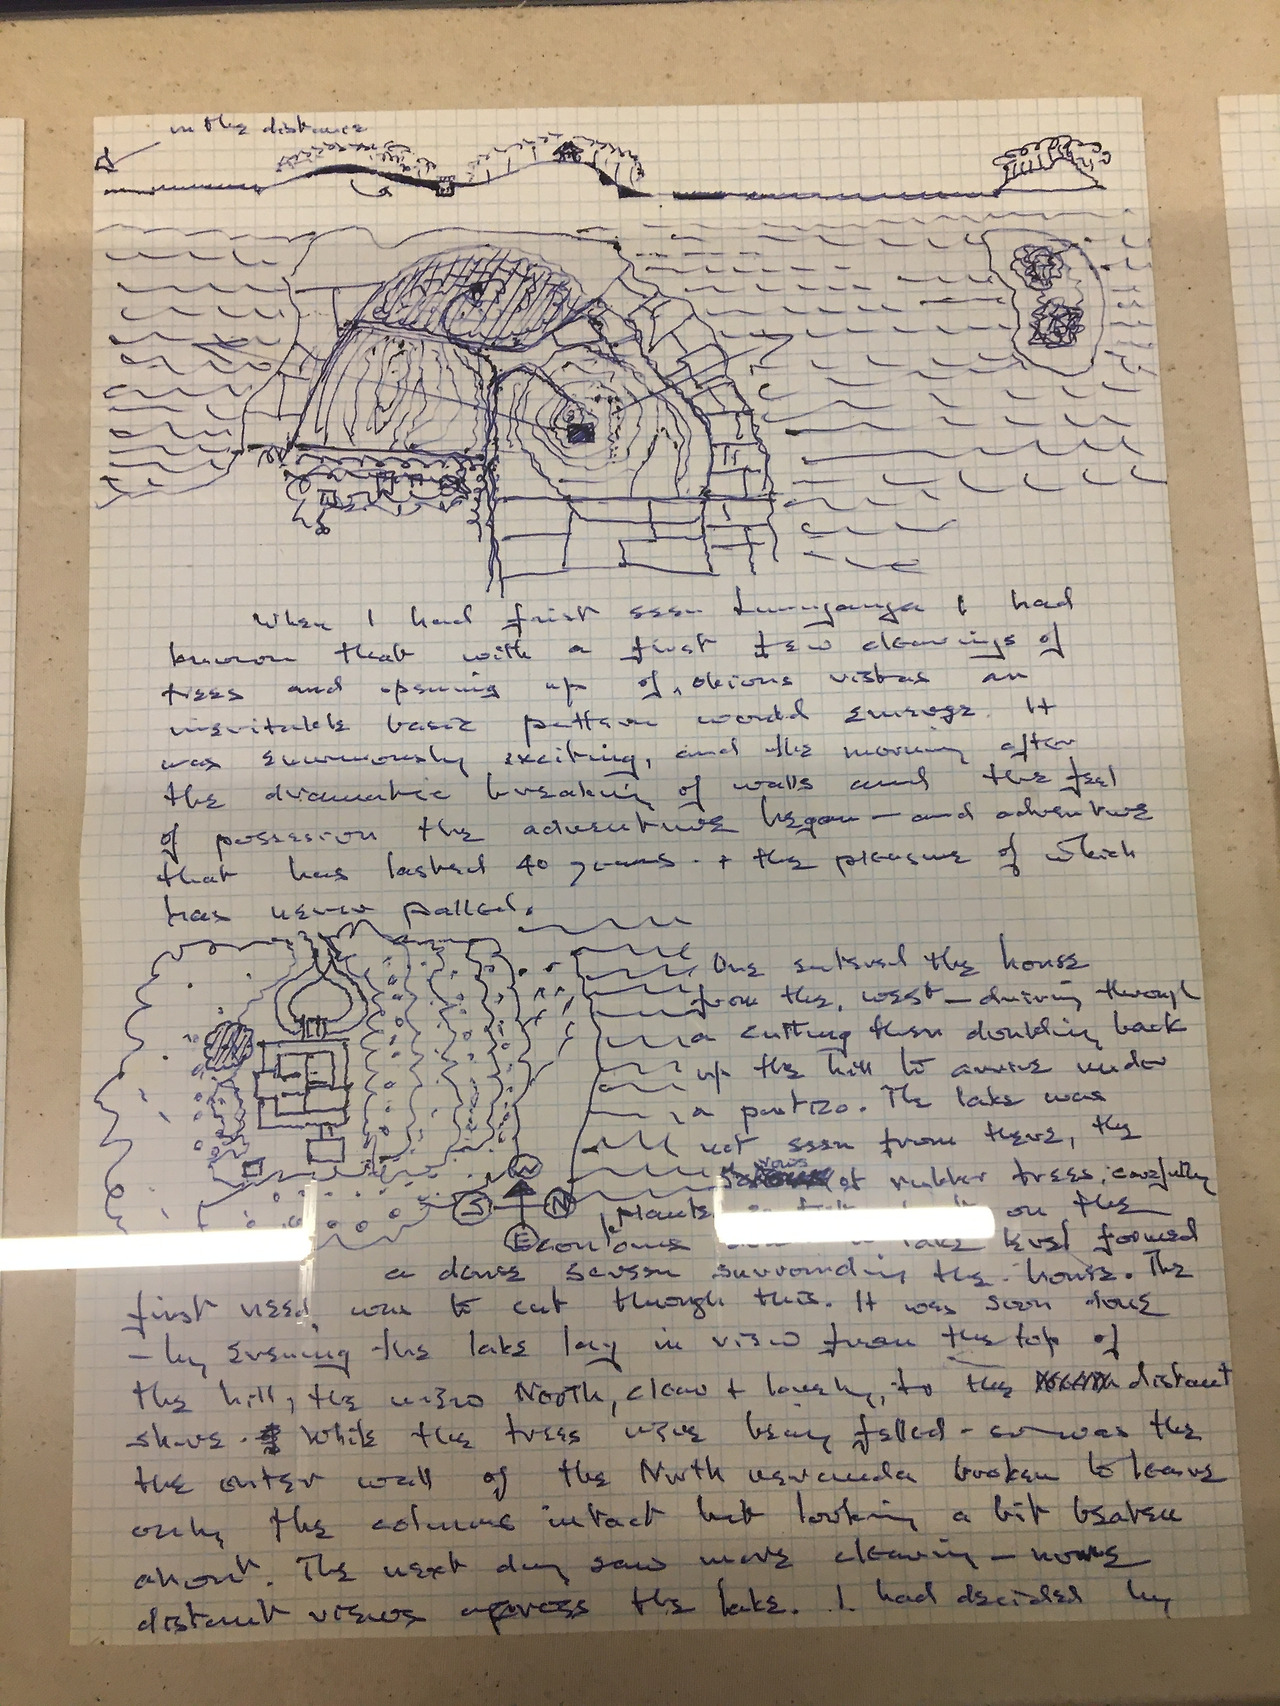 in the distance
When I had frist seen Lunuganga I had
known that with a first few clearings of
trees and opening up of obvious vistas an
inevitable basic pattern would emerge. It
was enormously exciting, and the morning after
the dramatic breaking of walls and the feel
of possession the adventure began — and adventure
that has lasted 40 years. + the pleasure of which
has never palled.
One entered the house
from the west — driving through
a cutting then doubling back
up the hill to arrive under
a portico. The lake was
not seen from there, the
rows
of rubber trees, carefully
W
S N
E
on the
lake level formed
a dense screen surrounding the house. The
first need was to cut through this. It was soon done
— by evening the lake lay in view from the top of
the hill, the view North, clear + lovely, to the distant
shore. While the trees were being felled - so was the
the outer wall of the North veranda broken to leave
only the columns intact but looking a bit beaten
about. The next day saw more clearing — more
distant views across the lake. I had decided by